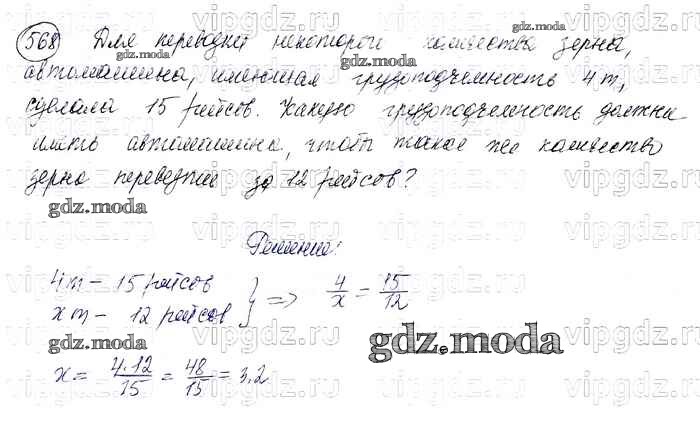 568 Для перевозки некоторого количества зерна,
автомашина, имеющая грузоподъемность 4 т,
сделала 15 рейсов. Какую грузоподъемность должна
иметь автомашина, чтобы такое же количество
зерна перевезти за 12 рейсов?
gdz.moda
gdz.moda
gdz.moda
Решение:
4 т – 15 рейсов
x т – 12 рейсов } => 4/x = 15/12
gdz.moda
gdz.moda
x = 4·12/15 = 48/15 = 3.2
vipgdz.ru